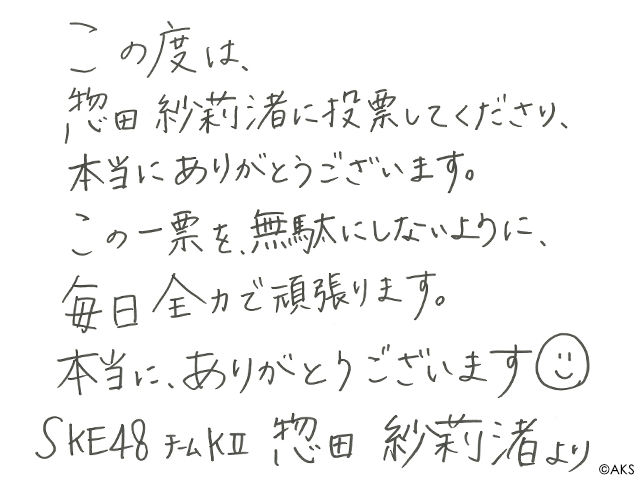 この度は、
惣田 紗莉渚に投票してくださり、
本当にありがとうございます。
この一票を、無駄にしないように、
毎日全力で頑張ります。
本当に、ありがとうございます
SKE48 チームKⅡ 惣田 紗莉渚より
©AKS